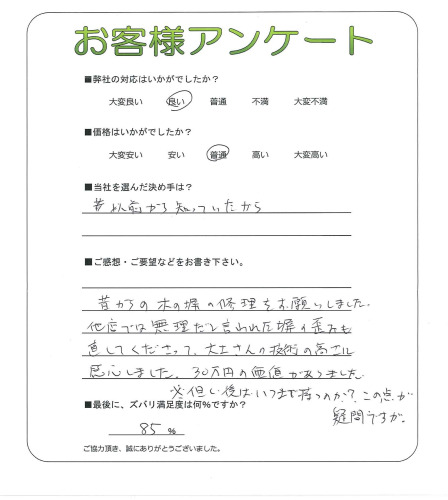 お客様アンケート
■弊社の対応はいかがでしたか？
大変良い 良い 普通 不満 大変不満
■価格はいかがでしたか？
大変安い 安い 普通 高い 大変高い
■当社を選んだ決め手は？
以前から知っていたから
■ご感想・ご要望などをお書き下さい。
昔からの木の塀の修理をお願いしました。
他店では無理だと言われた塀の歪みも
直してくださって、大工さんの技術の高さに
感心しました。30万円の価値がありました。
但し後はいつまで持つのか？この点が
疑問ですが。
■最後に、ズバリ満足度は何％ですか？
85 %
ご協力頂き、誠にありがとうございました。